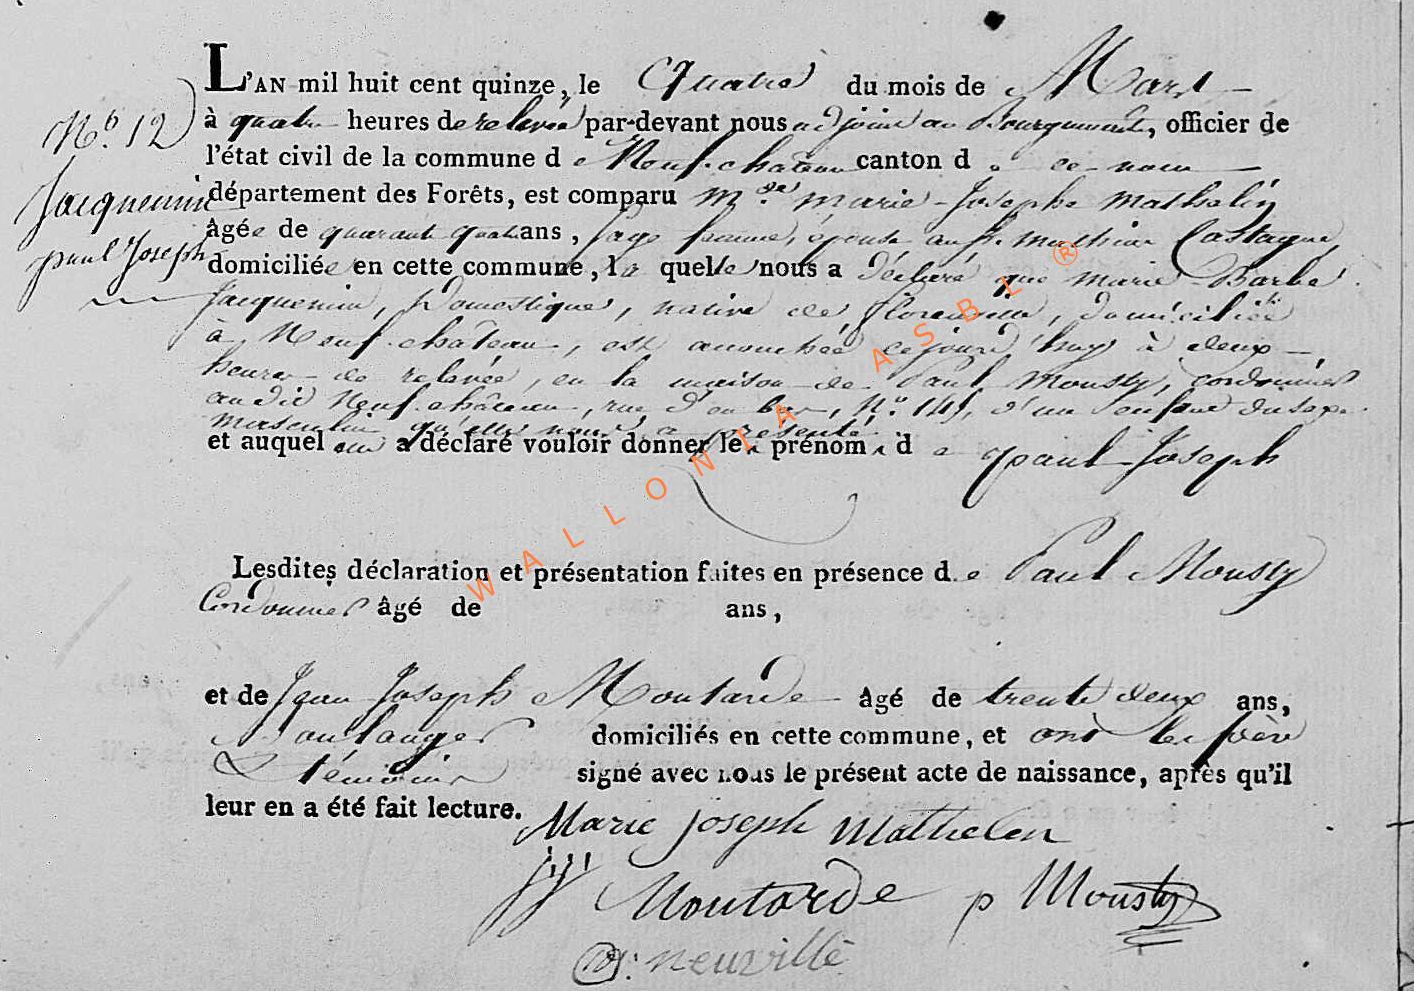 L'AN mil huit cent quinze, le Quatre du mois de Mars
N.o 12
à quatre heures de relevée par-devant nous adjoint au Bourguemestre, officier de
l'état civil de la commune de Neufchateau canton de ce nom
Jacquemin
paul Joseph
département des Forêts, est comparu M.de marie-Josephe mathelin
âgée de quarante quatre ans, sage femme, épouse au Sr. mathieu Castagne,
domiciliée en cette commune, la quelle nous a déclaré que marie-Barbe
Jacquemin, Domestique, native de florenville, domiciliée
à Neufchâteau, est accouchée cejourd'huy à deux
heures de relevée, en la maison de Paul Mousty, cordonnier
audit Neufchâteau, rue d'en bas, N.o 141, d'un enfant du sexe
masculin qu'elle nous a présenté
et auquel elle a déclaré vouloir donner les prénoms de paul-Joseph
Lesdites déclaration et présentation faites en présence de Paul Mousty
Cordonnier âgé de ans,
et de Jean Joseph Moutarde âgé de trente deux ans,
Boulanger domiciliés en cette commune, et ont les
& témoins signé avec nous le présent acte de naissance, après qu'il
leur en a été fait lecture.
Marie joseph Mathelen
JJ Moutarde p Mousty
neuville
WALLONIA ASBL ®